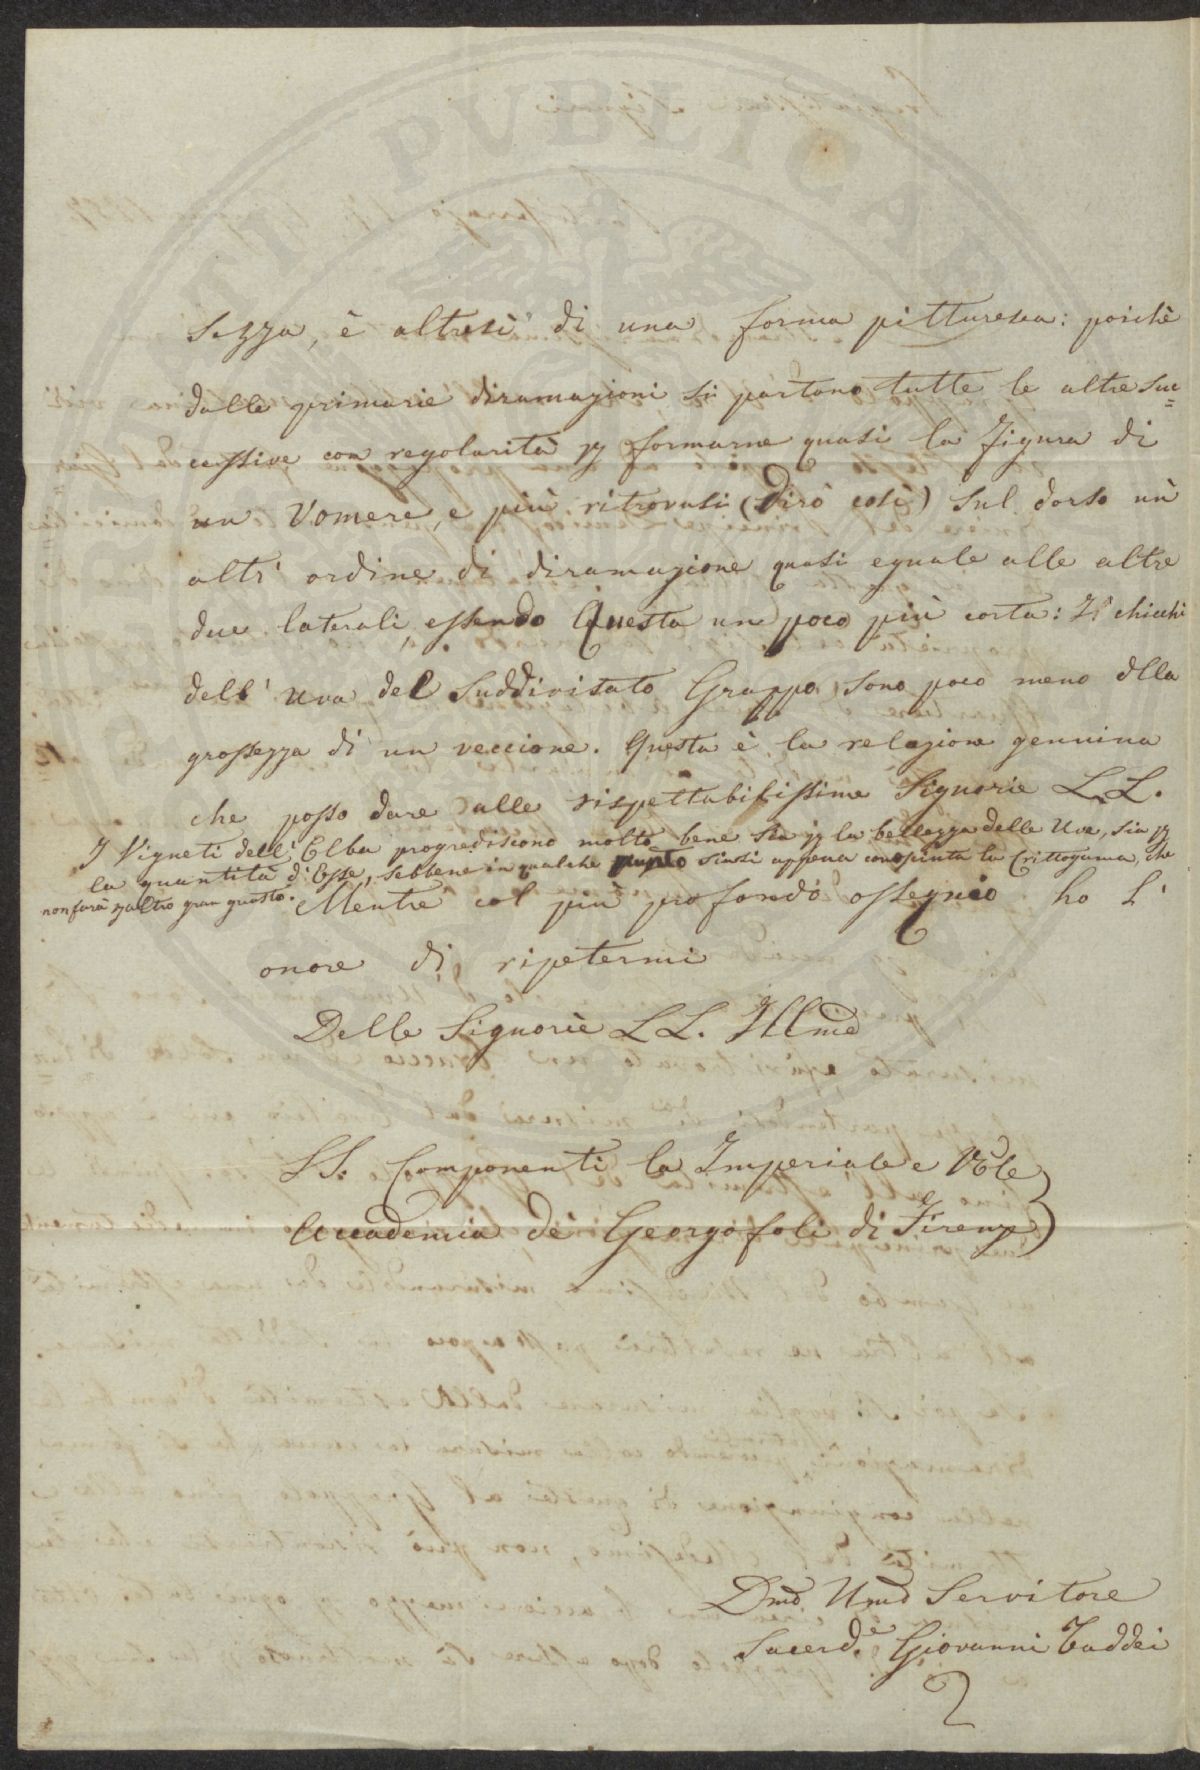 sezza, è altresì di una forma pitturesca: poichè
dalle primarie diramazioni si partano tutte le altre suc=
cessive con regolarità p formarne quasi la figura di
un Vomere, e più ritrovasi (dirò così) sul dorso un
altr' ordine di diramazione quasi eguale alle altre
due laterali, essendo Questa un poco più corta: I chicchi
dell' Uva del Suddivisato Grappo, sono poco meno dlla
grossezza di un veccione. Questa è la relazione genuina
che posso dare alle rispettabilissime Signorie LL.
I Vigneti dell' Elba progrediscono molto bene sia p la bellezza delle Uve, sia p
la quantità d'Esse, sebbene in qualche punto siasi appena congiunta la Crittogama, che
non farà p altro gran guasto.
Mentre col più profondo ossequio ho l'
onore di ripetermi
Delle Signorie LL. Illme
SS. Componenti la Imperiale e Rle
Accademia de' Georgofoli di Firenze
Dmo Umo Servitore
Sacerde Giovanni Taddei
PVBLICAE